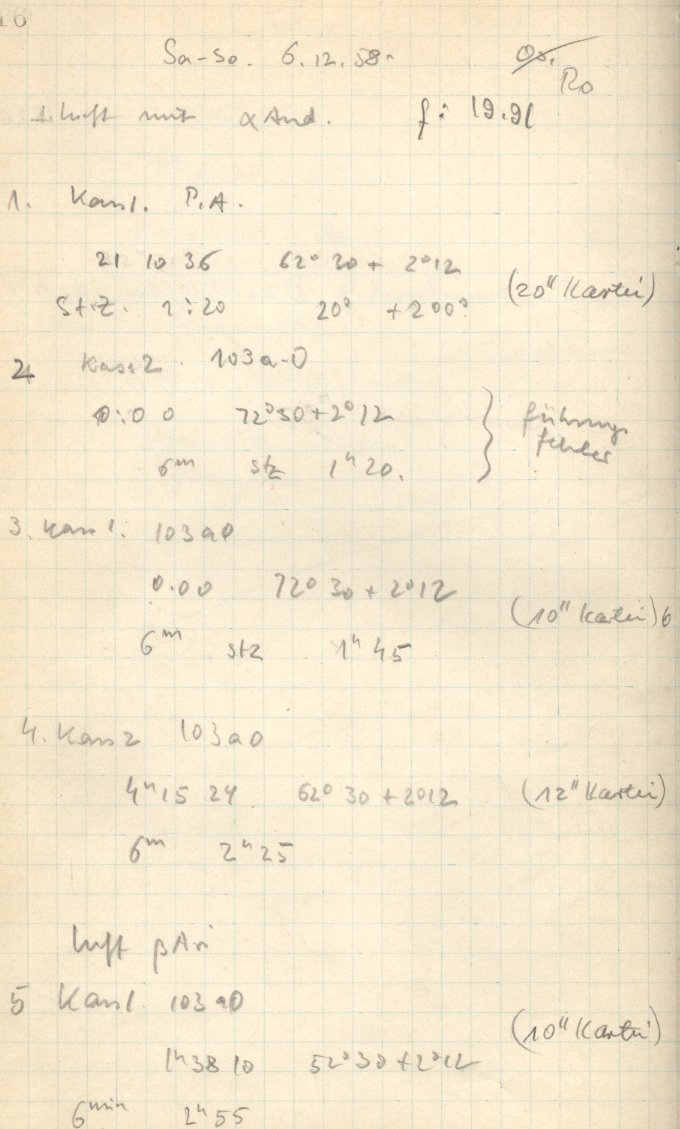 16
Sa-So. 6.12.58. Os.
Ro
1. Luft mit α And. f: 19.91
1. Kass1. P.A.
21 10 36 62° 30 + 2°12
(20" Kartei)
StZ. 1:20 20° +200?
2. Kass2 103a-O
0:00 72°30+2°12
6m stz 1h20.
Führungs
fehler
3. Kass1. 103aO
0.00 72° 30 + 2°12
(10" Kartei) 6
6m stz 1h 45
4. Kass2 103aO
4h15 24 62° 30 +2°12 (12" Kartei)
6m 2h 25
Luft β Ari
5 Kass1. 103aO
(10" Kartei)
1h38 10 52°30 +2°12
6min 2h 55